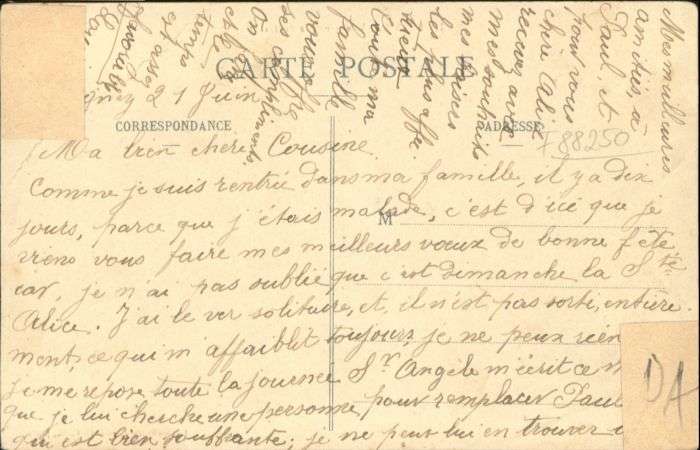 CARTE POSTALE
CORRESPONDANCE
ADRESSE
M
F 88250
21 Juin
Ma bien chère Cousine
Comme je suis rentrée dans ma famille, il y a dix
jours, parce que j'étais malade, c'est d'ici que je
viens vous faire mes meilleurs vœux de bonne fête
car, je n'ai pas oublié que c'est dimanche la Ste
Alice. J'ai le ver solitaire, et, il n'est pas sorti, entière
ment, ce qui m'affaiblit toujours, je ne peux rien
Je me repose toute la journée Sr Angèle m'écrit ce m
que je lui cherche une personne pour remplacer Paul
qui est bien souffrante; je ne peux lui en trouver
Mes meilleures
amitiés, à
Paul, et
pour vous
chère Alice
recevez avec
mes souhaits
mes baisers
les plus affec
tueux
Cousine
ma
famille
vous offre
ses compliments
On
temps
et assez
DA